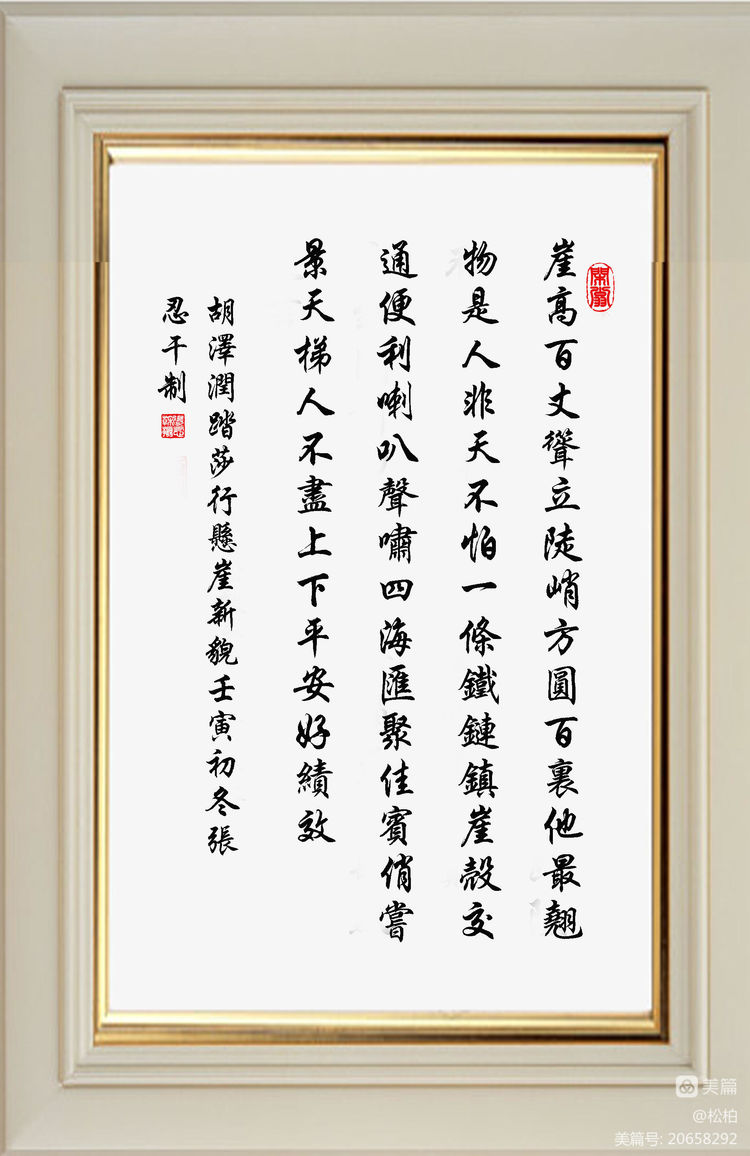 崖高百丈聳立陡峭方圓百裏他最翹
物是人非天不怕一條鐵鏈鎮崖殼交
通便利喇叭聲嘯四海匯聚佳賓俏嘗
景天梯人不盡上下平安好績效
胡澤潤踏莎行懸崖新貌壬寅初冬張
忍干制
美篇
@松柏
美篇号: 20658292